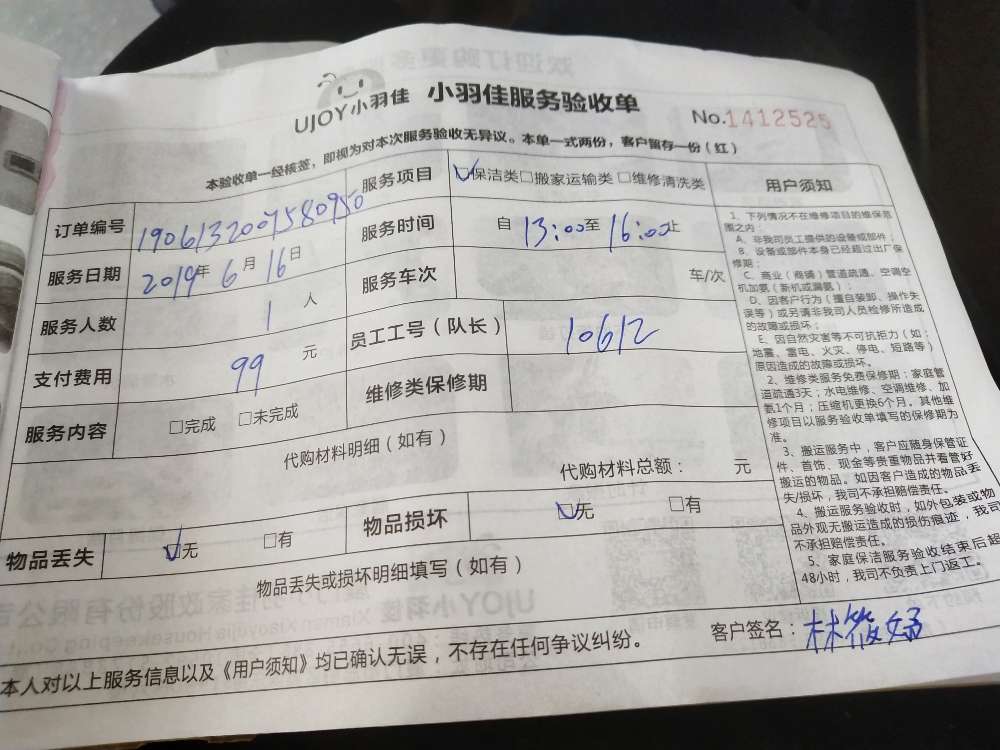 UJOY小羽佳 小羽佳服务验收单
No.1412525
本验收单一经核签，即视为对本次服务验收无异议。本单一式两份，客户留存一份（红）
订单编号 190613200758095０ 服务项目 ☑保洁类□搬家运输类 □维修清洗类
服务日期 2019年6月16日 服务时间 自 13:00至 16:00止
服务人数 1 人 服务车次 车/次
支付费用 99 元 员工工号（队长） 10612
服务内容 □完成 □未完成 维修类保修期
代购材料明细（如有）
代购材料总额： 元
物品丢失 ☑无 □有 物品损坏 ☑无 □有
物品丢失或损坏明细填写（如有）
本人对以上服务信息以及《用户须知》均已确认无误，不存在任何争议纠纷。
客户签名：林筱妤
用户须知
1、下列情况不在维修项目的维保范
围之内：
A、非我司员工提供的设备或部件；
B、设备或部件本身已经超过出厂保
修期；
C、商业（商铺）管道疏通、空调空
机加氨（新机或漏氨）；
D、因客户行为（擅自装卸、操作失
误等）或另请非我司人员检修所造成
的故障或损坏；
E、因自然灾害等不可抗拒力（如：
地震、雷电、火灾、停电、短路等）
原因造成的故障或损坏。
2、维修类服务免费保修期：家庭管
道疏通3天；水电维修、空调维修、加
氨1个月；压缩机更换6个月。其他维
修项目以服务验收单填写的保修期为
准。
3、搬运服务中，客户应随身保管证
件、首饰、现金等贵重物品并看管好
搬运的物品。如因客户造成的物品丢
失/损坏，我司不承担赔偿责任。
4、搬运服务验收时，如外包装或物
品外观无搬运造成的损伤痕迹，我司
不承担赔偿责任。
5、家庭保洁服务验收结束后超
48小时，我司不负责上门返工。